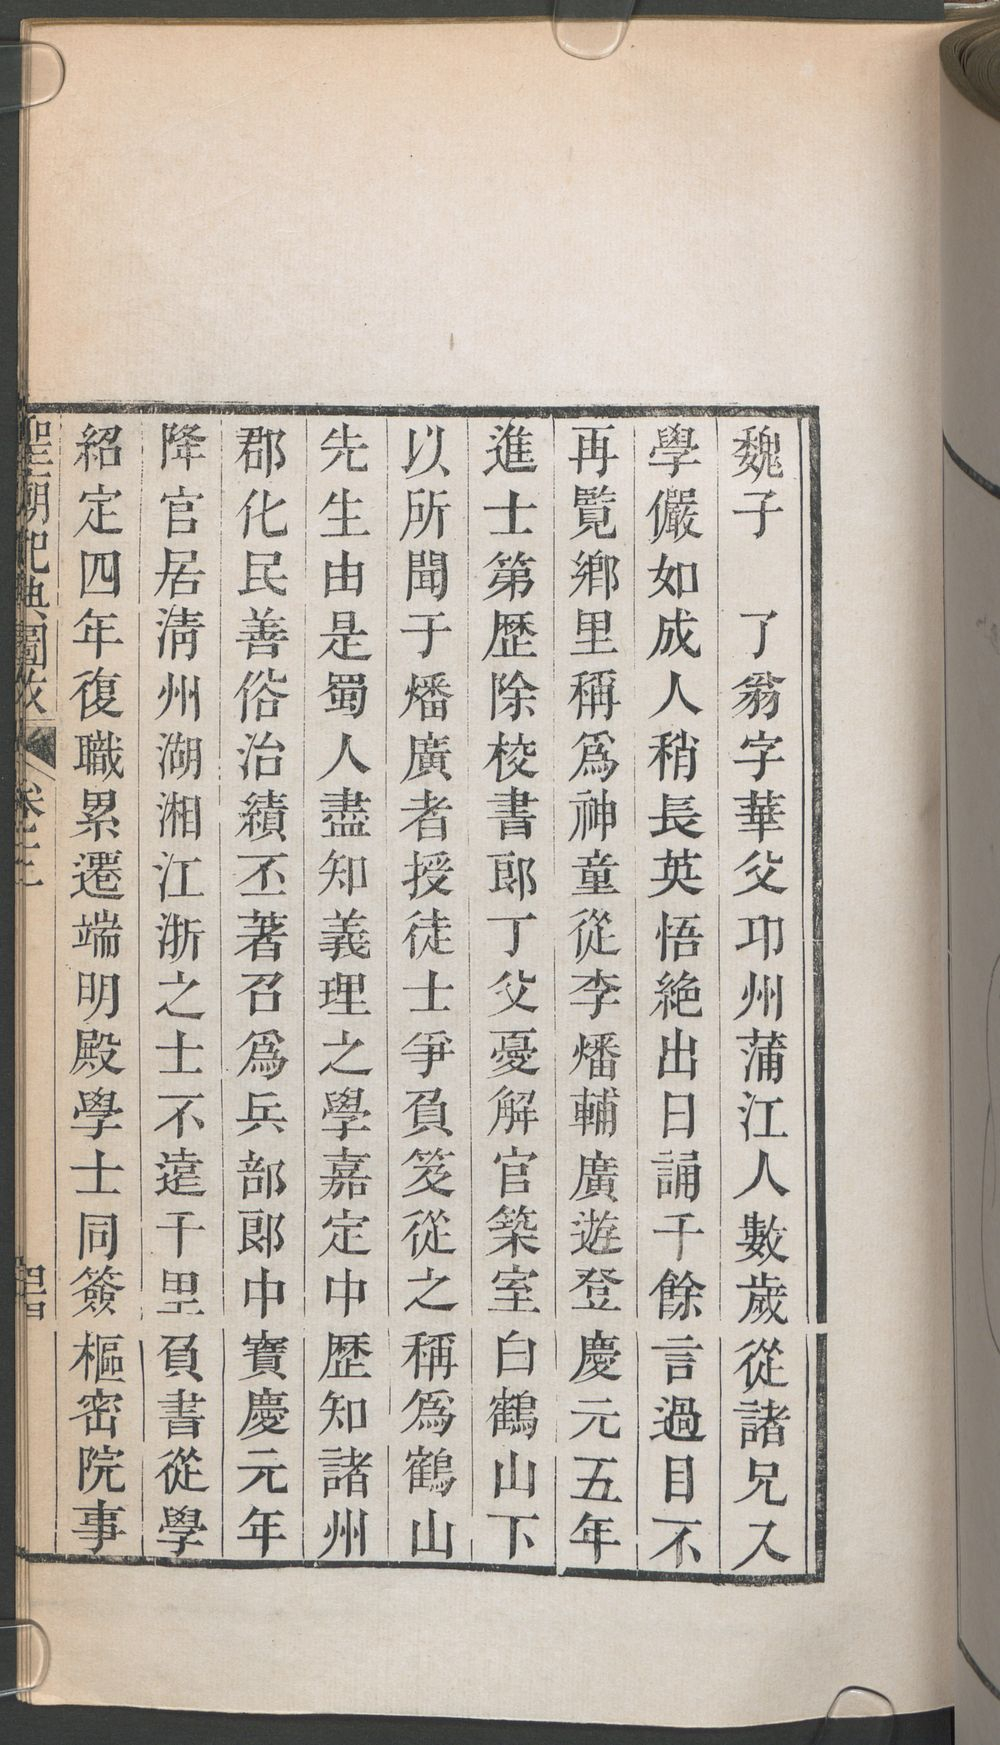 魏子　了翁字華父邛州蒲江人數歲從諸兄入
學儼如成人稍長英悟絶出日誦千餘言過目不
再覽鄉里稱爲神童從李燔輔廣遊登慶元五年
進士第歷除校書郎丁父憂解官築室白鶴山下
以所聞于燔廣者授徒士爭負笈從之稱爲鶴山
先生由是蜀人盡知義理之學嘉定中歷知諸州
郡化民善俗治績丕著召爲兵部郎中寶慶元年
降官居淸州湖湘江浙之士不遠千里負書從學
紹定四年復職累遷端明殿學士同簽樞密院事
聖朝祀典圖攷　卷三